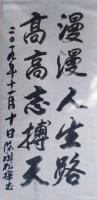 漫漫人生路
高高志搏天
二〇一九年十一月十日